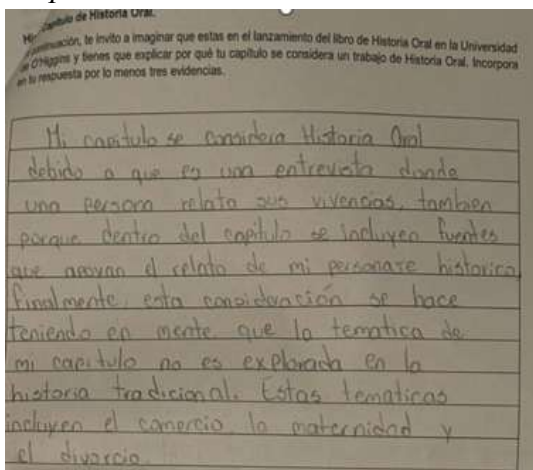 capítulo de Historia Oral.
continuación, te invito a imaginar que estas en el lanzamiento del libro de Historia Oral en la Universidad
de O'Higgins y tienes que explicar por qué tu capítulo se considera un trabajo de Historia Oral. Incorpora
en tu respuesta por lo menos tres evidencias.
Mi capitulo se considera Historia Oral
debido a que es una entrevista donde
una persona relata sus vivencias, tambien
porque dentro del capitulo se incluyen fuentes
que apoyan el relato de mi personaje historico,
finalmente, esta consideración se hace
teniendo en mente que la tematica de
mi capitulo no es explorada en la
historia tradicional. Estas tematicas
incluyen el comercio, la maternidad y
el divorcio.